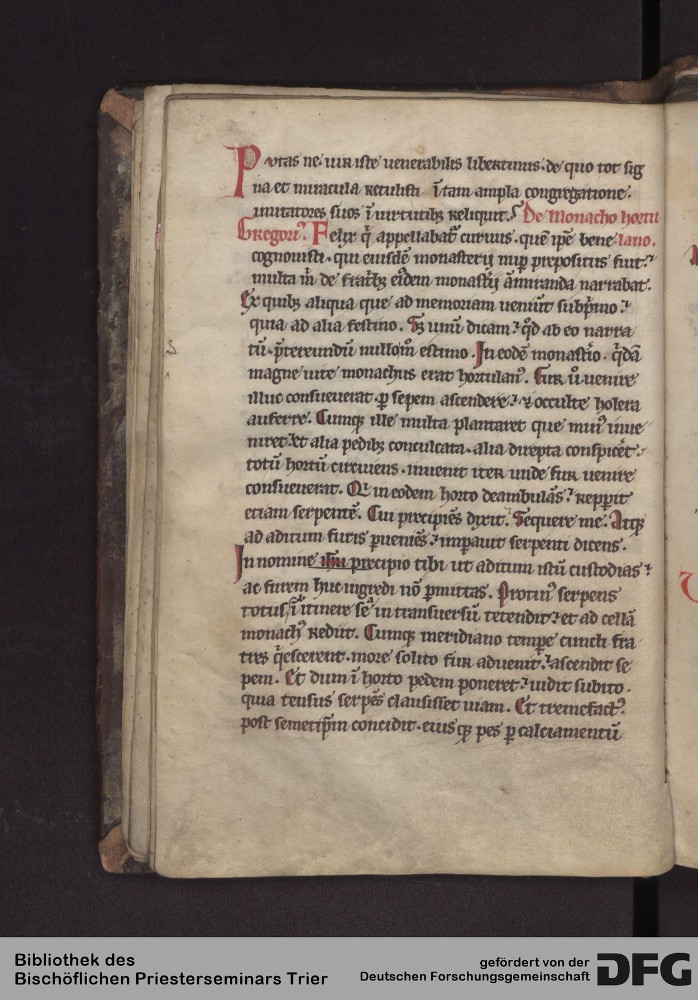 Putas ne uir iste uenerabilis libertinus. de quo tot sig
na et miracula retulisti ītam ampla congregatione.
imitatores suos ī uirtutibꝫ reliquit. De monacho hortu
Gregori᷒. Felix q̄ appellabat᷑ curuus. quē ip̄e bene lano.
cognouisti. qui eiusdē monasterij nup̄ prepositus fuit.
multa m̄ de fratribꝫ eiꝰdem monast̄ij āmiranda narrabat.
Ex quibꝫ aliqua que ad memoriam ueniūt subp̄mo.
quia ad alia festino. Sꝫ unū dicam. qd̄ ab eo narra
tū. p̄tereundū nullom̄ estimo. In eodē monast̄io. q̄dā
magne uite monachus erat hortulanꝰ. Fur ū uenire
illuc consueuerat. ꝑ sepem ascendere. ⁊ occulte holera
auferre. Cumqꝫ ille multa plantaret que minꝰ inue
niret. et alia pedibꝫ conculcata. alia direpta conspicēt.
totū hortū circuiens. inuenit iter unde fur uenire
consueuerat. Qi in eodem horto deambulās. repp̄it
etiam serpentē. Cui precipiēs dixit. Sequere me. Atqꝫ
ad aditum furis ꝑueniēs. imp̄auit serpenti dicens.
In nomine ih̄u precipio tibi ut aditum istū custodias.
ac furem huc ingredi nō ꝑmittas. Protinꝰ serpens
totus ī itinere sē in transuersū tetendit. et ad cellā
monachꝰ rediit. Cumqꝫ meridiano temp̄e cuncti fra
tres q̄escerent. more solito fur aduenit. ascendit se
pem. Et dum ī horto pedem poneret. uidit subito.
quia tensus serpēs clausisset uiam. Et tremefactꝰ.
post semetip̄m concidit. eiusqꝫ pes ꝑ calciamentū
Bibliothek des
Bischöflichen Priesterseminars Trier
gefördert von der
Deutschen Forschungsgemeinschaft
DFG